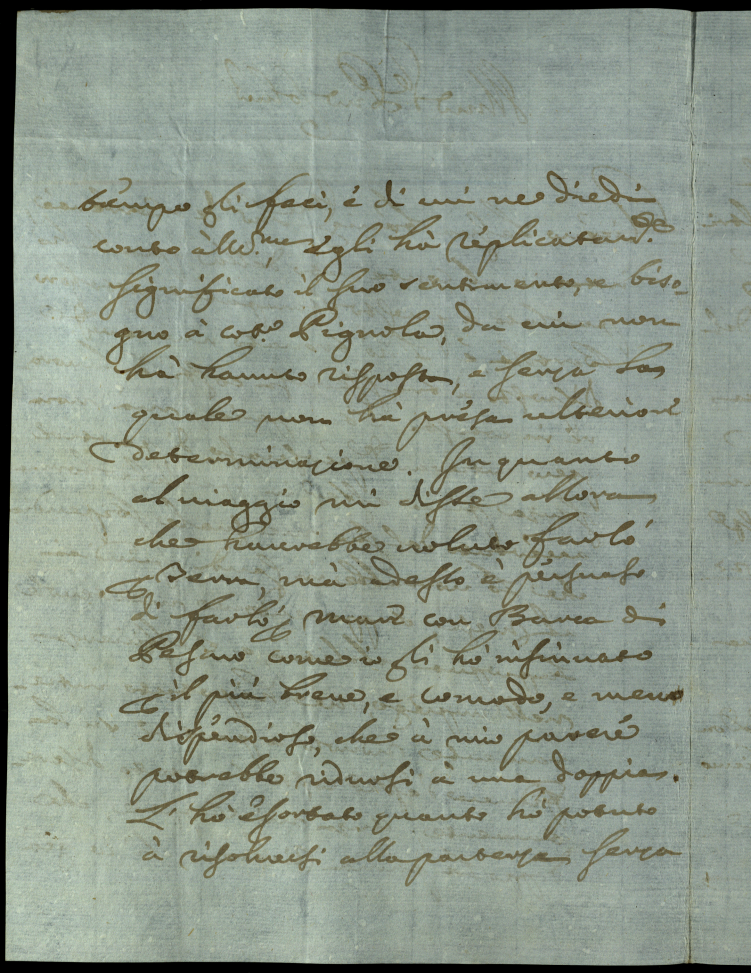 tempo gli feci, è di cui ne diedi
conto all'
Egli hà replicatam.te
significato il suo sentimento, e biso-
gno à cot.o Pignola, da cui non
hà hauuto risposta, e senza la
quale non hà presa ulteriore
determinazione. In quanto
al uiaggio mi disse allora
che haurebbe uoluto farlo
Terra, mà adesso è persuaso
di farlo mare con Barca di
Pesaro come io gli hò insinuato
il più breue, e comodo, e meno
dispendioso, che à mio parere
potrebbe ridursi à una doppia.
L'hò esortato quanto hò potuto
à risoluersi alla partenza senza